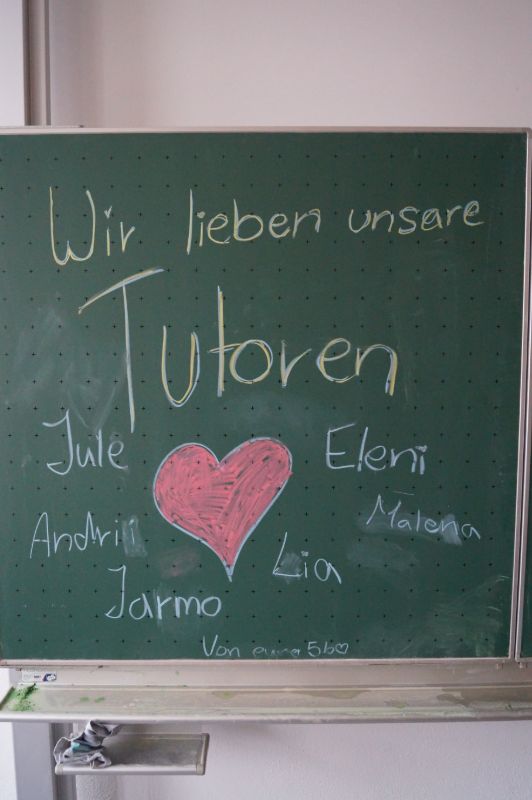 Wir lieben unsare
Tutoren
Jule Eleni
Andrii Malena
Jarmo Lia
Von eure 5b♡